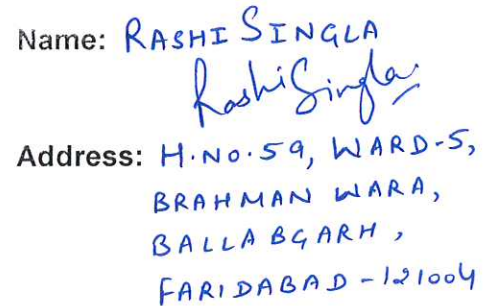 Name: RASHI SINGLA
Rashi Singla
Address: H.NO.59, WARD-5,
BRAHMAN WARA,
BALLABGARH,
FARIDABAD-121004